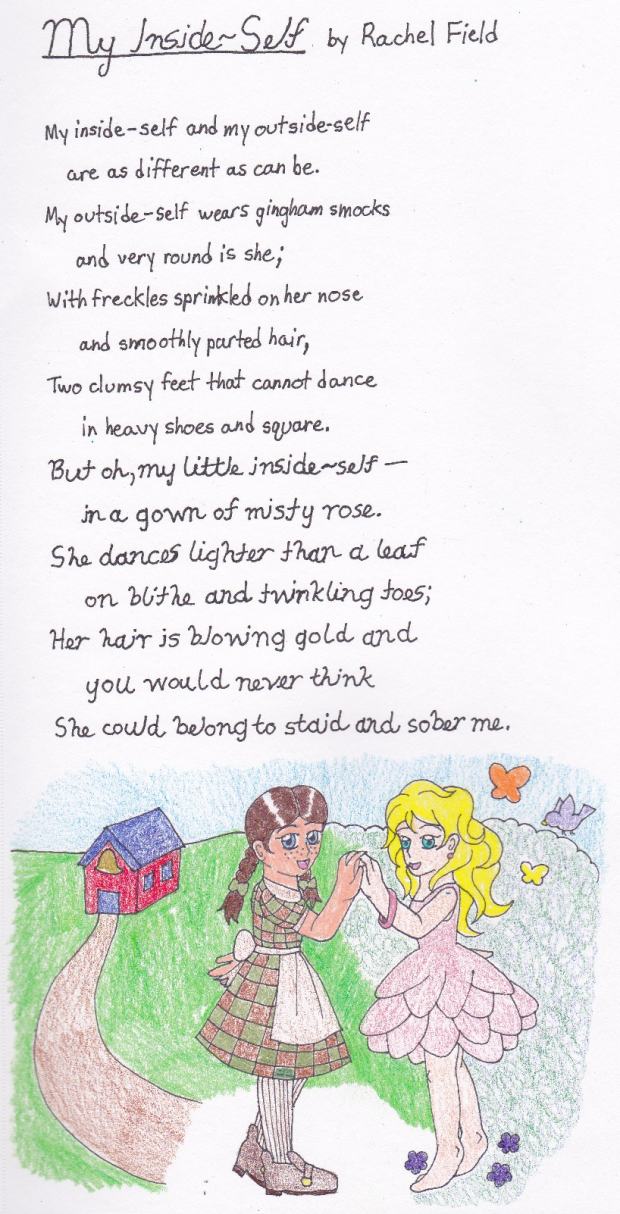 My Inside~Self by Rachel Field
My inside-self and my outside-self
are as different as can be.
My outside-self wears gingham smocks
and very round is she;
With freckles sprinkled on her nose
and smoothly parted hair,
Two clumsy feet that cannot dance
in heavy shoes and square.
But oh, my little inside~self —
in a gown of misty rose.
She dances lighter than a leaf
on blithe and twinkling toes;
Her hair is blowing gold and
you would never think
She could belong to staid and sober me.